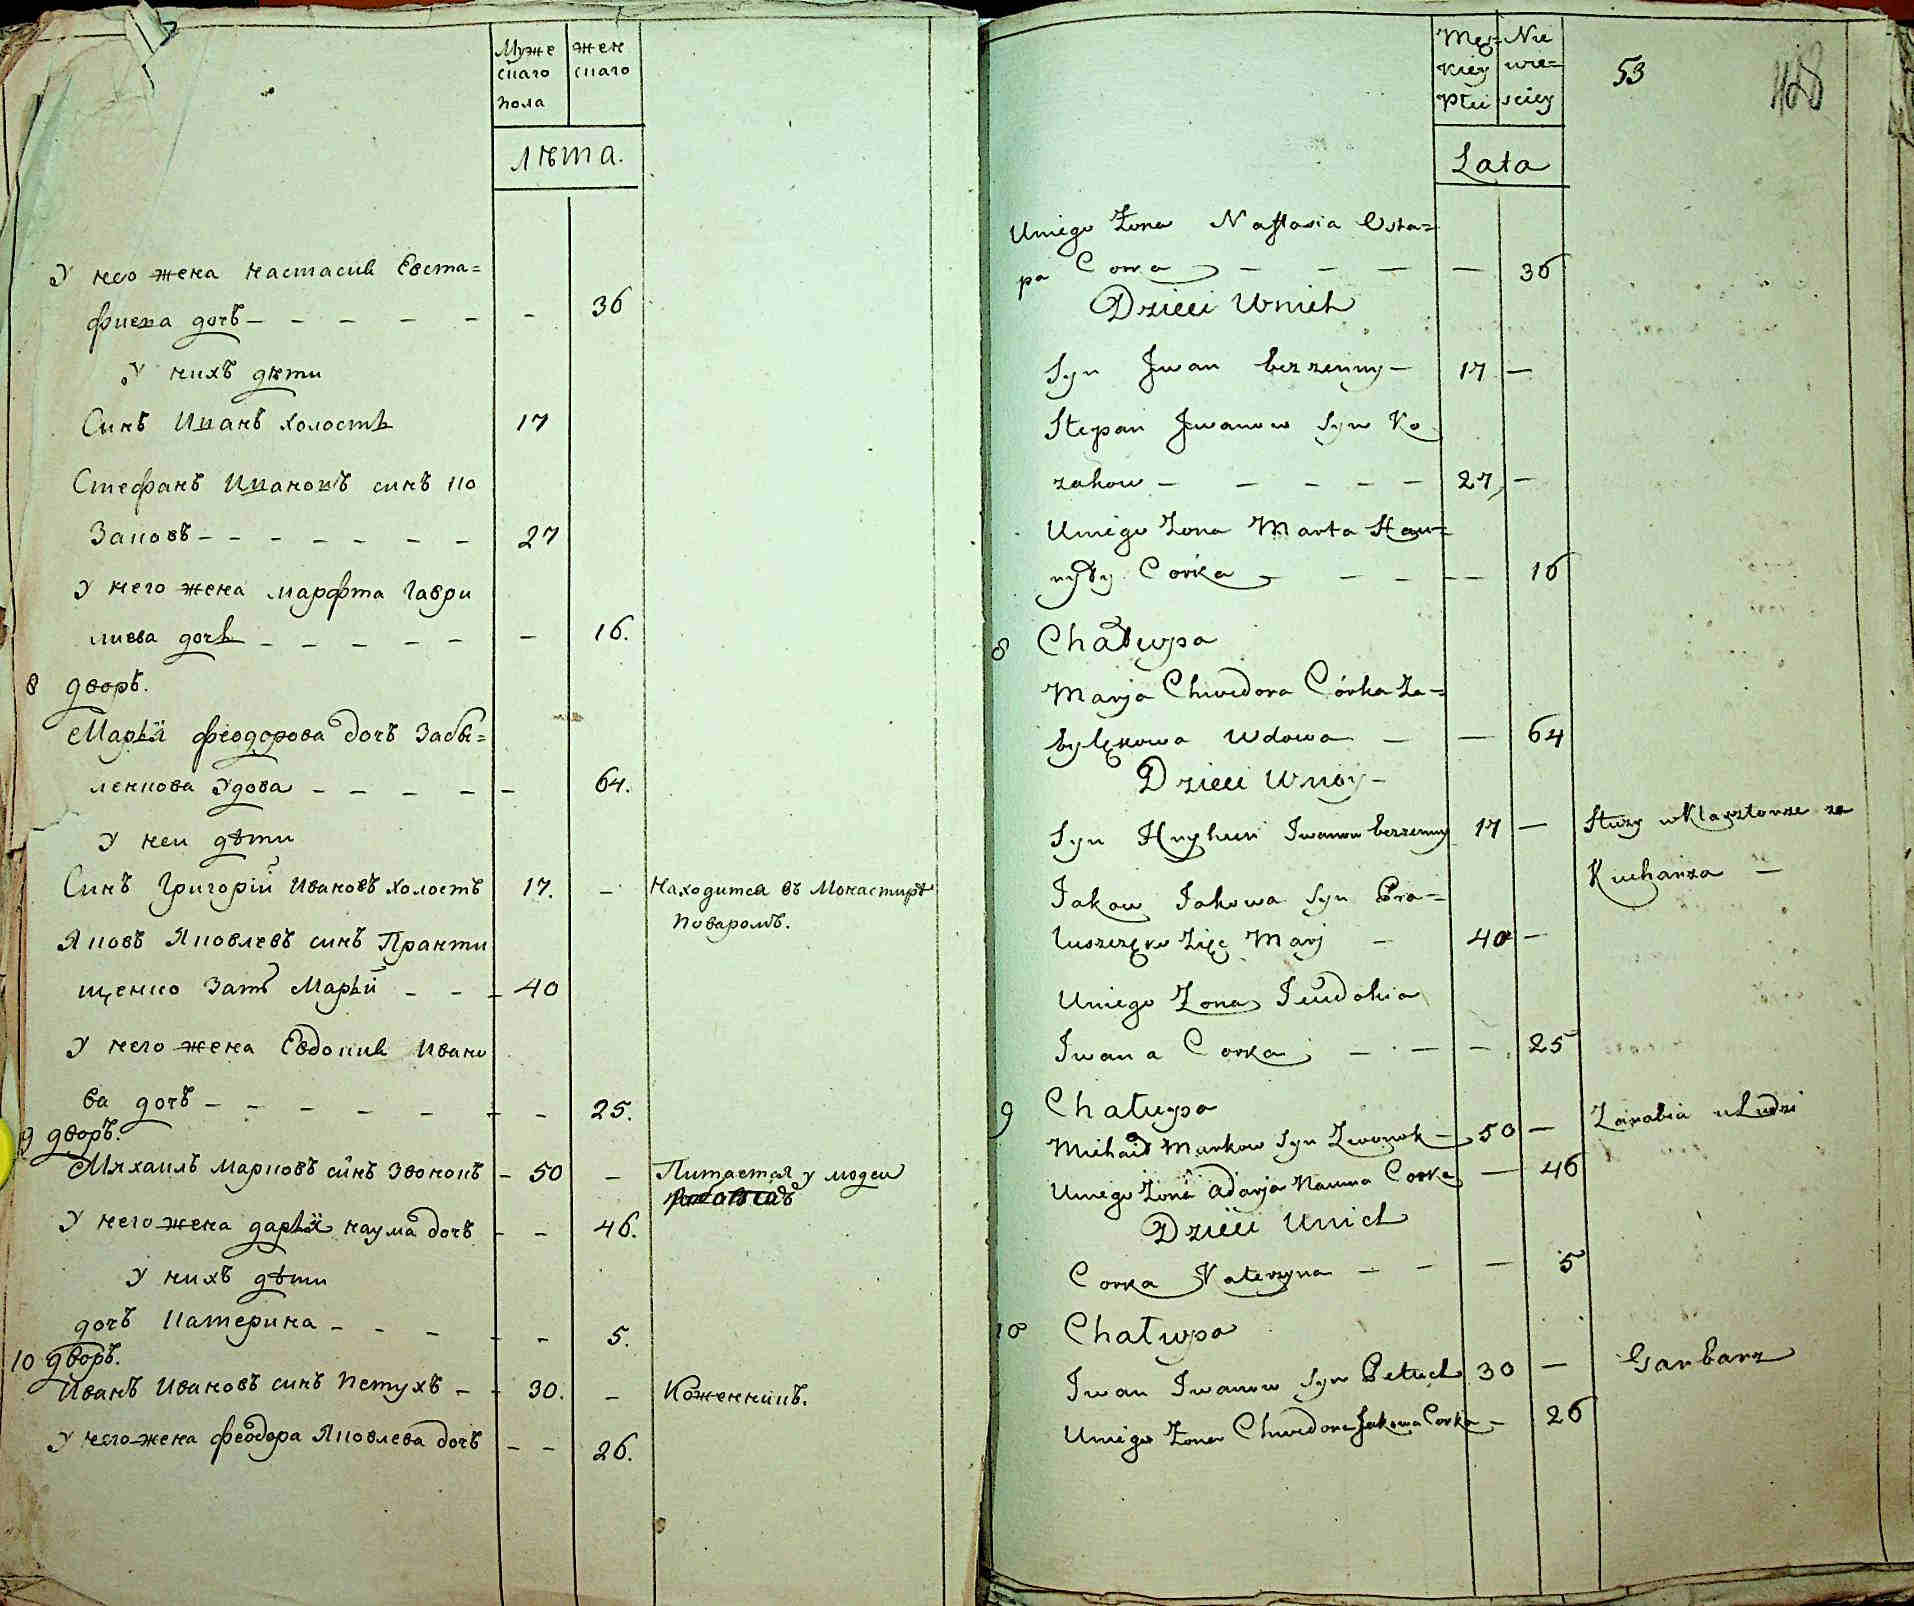 Муже жен
скаго скаго
пола
лѣта.
У него жена Настасия Евста=
фиева дочь - - - - - - 36
У нихъ дѣти
Синъ Иванъ холостъ 17
Стефанъ Ивановъ синъ Ко
заковъ - - - - - - 27
У него жена Марфта Гаври
лиева дочь - - - - - - 16.
8 дворъ.
Марья Феодорова дочъ Забы=
ленкова Удова - - - - - 64.
У неи дѣти
Синъ Григорій Ивановъ холостъ 17. - Находится въ Монастирѣ
Поваромъ.
Яковъ Яковлевъ синъ Практи
щенко Зать Марьи - - - 40
У него жена Евдокия Ивано
ва дочъ - - - - - - - 25.
9 дворъ.
Михаилъ Марковъ синъ Звонокъ - 50 - Питается у людеи
У него жена Дарья Наума дочъ - - 46.
У нихъ дѣти
дочъ Катерина - - - - - 5.
10 дворъ.
Иванъ Ивановъ синъ Петухъ - - 30. - Коженникъ.
У него жена Феодора Яковлева дочъ - - 26.
Męz= Nie
kiey wie=
Płci sciey
53
Lata
Uniego Żona Nastasia Osta=
pa Corka - - - - 36
Dzieci Unich
Syn Iwan bezzenny - 17 -
Stepan Iwanow Syn Ko
zakow - - - - - 27 -
Uniego Zona Marta Haw=
ryły Córka - - - - - 16
8 Chałupa
Marja Chwedora Córka Za=
bylękowa Wdowa - - 64
Dzieci Uniey -
Syn Hryhuri Iwanow bezzenny 17 - Służy w Klasztorze za
Kucharza -
Iakow Iakowa Syn Pra=
luszczęko Zięc Marj - 40 -
Uniego Zona Ieudokia
Iwana Corka - - - 25
9 Chałupa
Michaił Markow Syn Zwonok - 50 - Zarabia u Ludzi
Uniego Zona Adarja Nauma Corka - 46
Dzieci Unich
Corka Katerzyna - - - 5
10 Chałupa
Iwan Iwanow Syn Petuch 30 - Garbarz
Uniego Zona Chwedora Jakowa Corka - 26